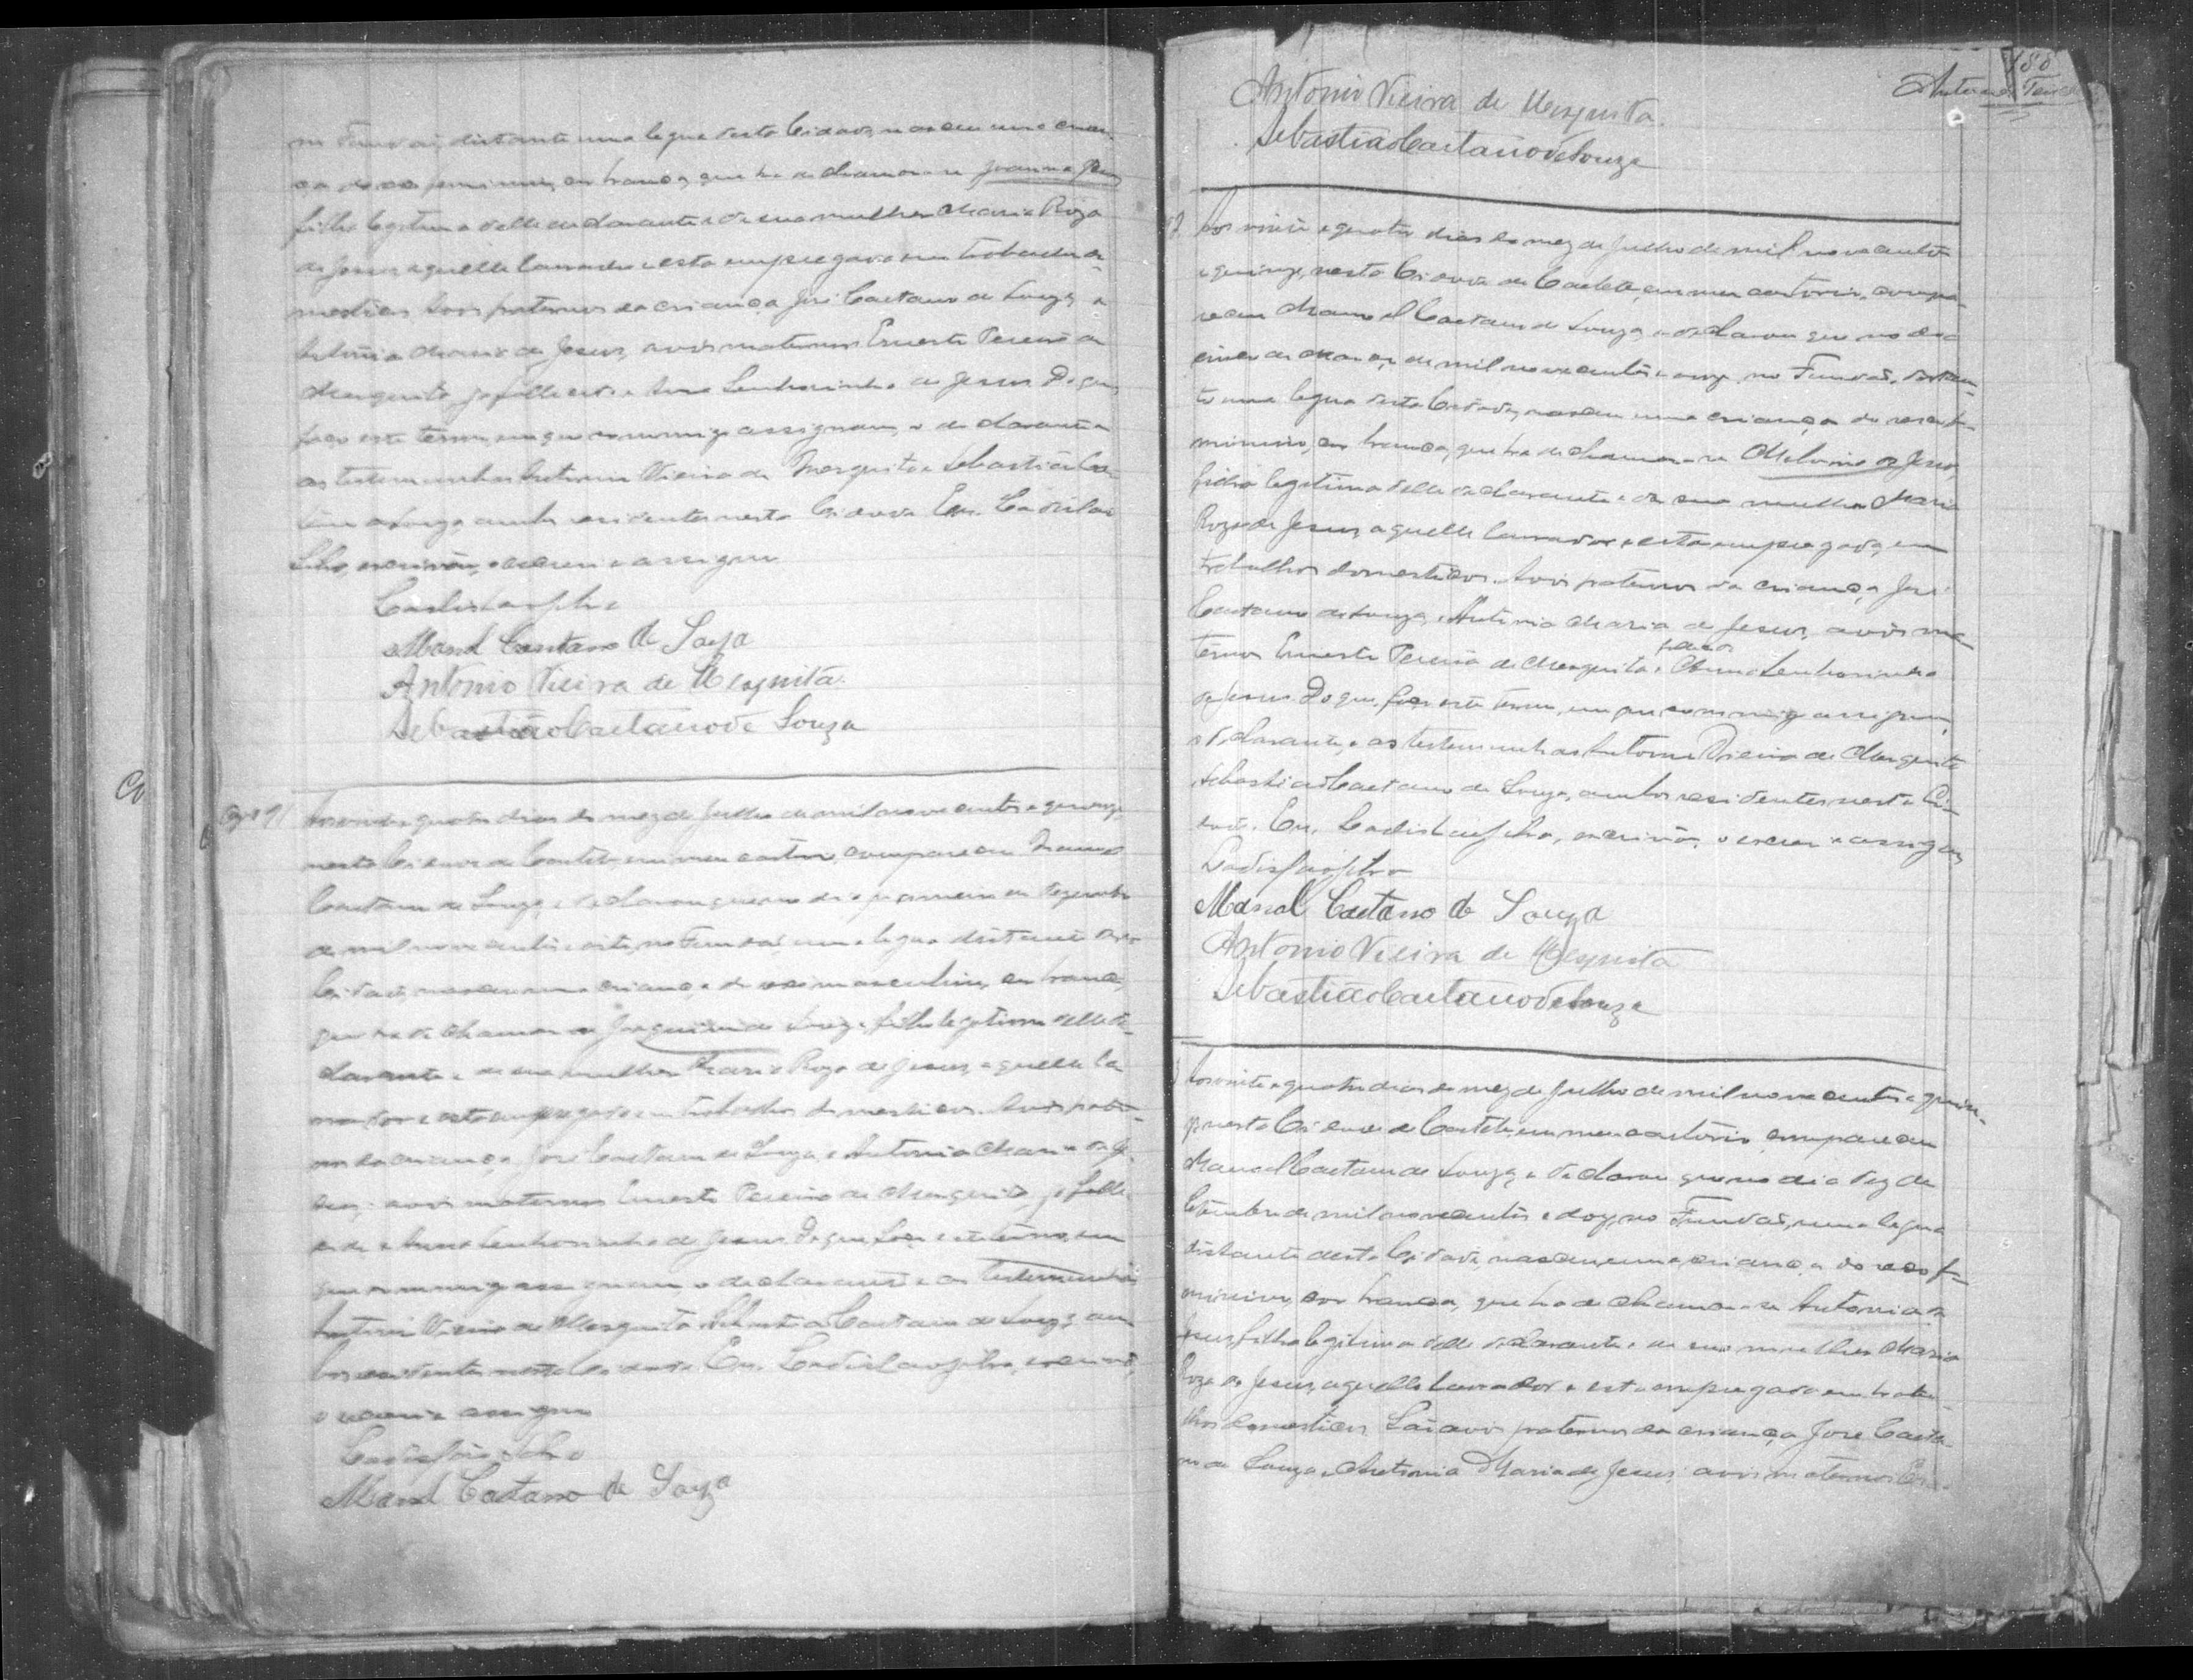 no Fundão, distante uma legua desta Cidade, nasceu uma crian-
ça do sexo feminino, cor branca, que ha de chamar-se Joanna
filha legitima delle declarante e de sua mulher Maria Roza
de Jesus, aquelle lavrador e esta empregada em trabalhos do-
mesticos. Avós paternos da criança José Caetano de Souza e
Antonia Maria de Jesus, avós maternos Ernesto Pereira de
Mesquita, ja fallecido e Anna Senhorinha de Jesus. Do que,
faço este termo, em que commigo assignam, o declarante e
as testemunhas Antonio Vieira de Mesquita e Sebastião Cae-
tano de Souza, ambos residentes nesta Cidade. Eu, Ladislau
Silva, escrivão, o escrevi e assigno
Ladislau Silva
Manoel Caetano de Souza
Antonio Vieira de Mesquita
Sebastião Caetano de Souza
91
Aos vinte e quatro dias do mez de Julho de mil novecentos e quinze,
nesta Cidade de Caeteté em meu cartorio, compareceu Manoel
Caetano de Souza, e declarou que no dia primeiro de Dezembro
de mil novecentos e oito, no Fundão, uma legua distante desta
Cidade, nasceu uma criança do sexo masculino, cor branca,
que ha de chamar-se Joaquim de Souza, filho legitimo delle de-
clarante e de sua mulher Maria Roza de Jesus, aquelle la-
vrador e esta empregada em trabalhos domesticos. Avós pater-
nos da criança, José Caetano de Souza, e Antonia Maria de Je-
sus; avós maternos Ernesto Pereira de Mesquita, ja falle-
cido e Anna Senhorinha de Jesus. Do que, faço este termo, em
que commigo assignam o declarante e as testemunhas
Antonio Vieira de Mesquita e Sebastião Caetano de Souza, am-
bos residentes nesta Cidade. Eu, Ladislau Silva, escrivão,
o escrevi e assigno
Ladislau Silva
Manoel Caetano de Souza
Antonio Vieira de Mesquita.
Sebastião Caetano de Souza
Aos vinte e quatro dias do mez de Julho de mil novecentos
e quinze, nesta Cidade de Caeteté, em meu cartorio, compa-
receu Manoel Caetano de Souza, e declarou que no dia
cinco de Março de mil novecentos e onze, no Fundão, distan-
te uma legua desta Cidade, nasceu uma criança do sexo fe-
minino, cor branca, que ha de chamar-se de Jesus,
filha legitima delle declarante e de sua mulher Maria
Roza de Jesus, aquelle lavrador e esta empregada, em
trabalhos domesticos. Avós paternos da criança, José
Caetano de Souza, e Antonia Maria de Jesus, avós ma-
ternos Ernesto Pereira de Mesquita, fallecido e Anna Senhorinha
de Jesus. Do que, faço este termo, em que commigo assignam,
o declarante, e as testemunhas Antonio Vieira de Mesquita
Sebastião Caetano de Souza, ambos residentes nesta Ci-
dade. Eu, Ladislau Silva, escrivão, o escrevi e assigno,
Ladislau Silva
Manoel Caetano de Souza
Antonio Vieira de Mesquita
Sebastião Caetano de Souza
Aos vinte e quatro dias do mez de Julho de mil novecentos e quin-
ze, nesta Cidade de Caeteté, em meu cartorio, compareceu
Manoel Caetano de Souza, e declarou que no dia dez de
Setembro de mil novecentos e doze, no Fundão, uma legua
distante desta Cidade, nasceu, uma criança do sexo fe-
minino, cor branca, que ha de chamar-se Antonia de
Jesus, filha legitima delle declarante e de sua mulher Maria
Roza de Jesus, aquelle lavrador e esta empregada em traba-
lhos domesticos. São avós paternos da criança José Caeta-
no de Souza e Antonia Maria de Jesus; avós maternos Er-